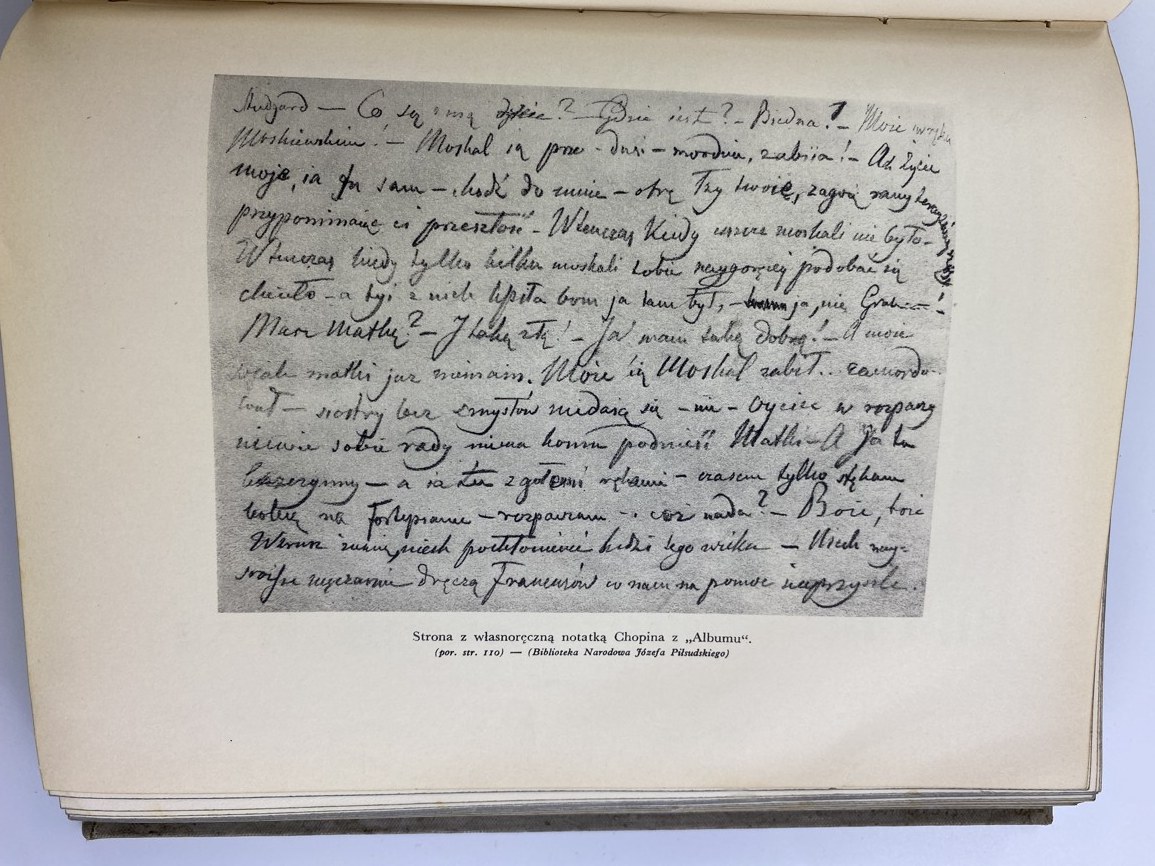 Sztudgard — Co się z nią dzieie? — Gdzie iest? — Biedna! — Może w ręku
Moskiewskim! — Moskal ią prze - dusi — morduie, zabiia! — Ach Życie
moje, ia tu sam — chodź do mnie — otrę łzy twoie, zagoię rany teraźnieyszości
przypominaiąc ci przeszłość — Wtenczas kiedy ieszcze moskali nie było —
Wtenczas kiedy tylko kilku moskali tobie naygoręcey podobać się
chciało — a tyś z nich kpiła bom ja tam był, — ja, nie Grab — !
Masz Matkę? — I taką złą! — Ja mam taką dobrą! — A może
wcale matki już niemam. Może ią Moskal zabił .. zamordo-
wał — siostry bez zmysłów niedaią się — nie — Oyciec w rozpaczy
niewie sobie rady niema komu podnieść Matki — A Ja tu
bezczynny — a ia tu z gołemi rękami — czasem tylko stękam
boleię na fortepianie — rozpaczam — i cóż nada? — Boże, Boże
Wzrusz ziemię, niech pochłonie ludzi tego wieku — Niech nay-
sroższe męczarnie dręczą Francuzów co nam na pomoc nieprzyszli.
Strona z własnoręczną notatką Chopina z „Albumu“.
(por. str. 110) — (Biblioteka Narodowa Józefa Piłsudskiego)